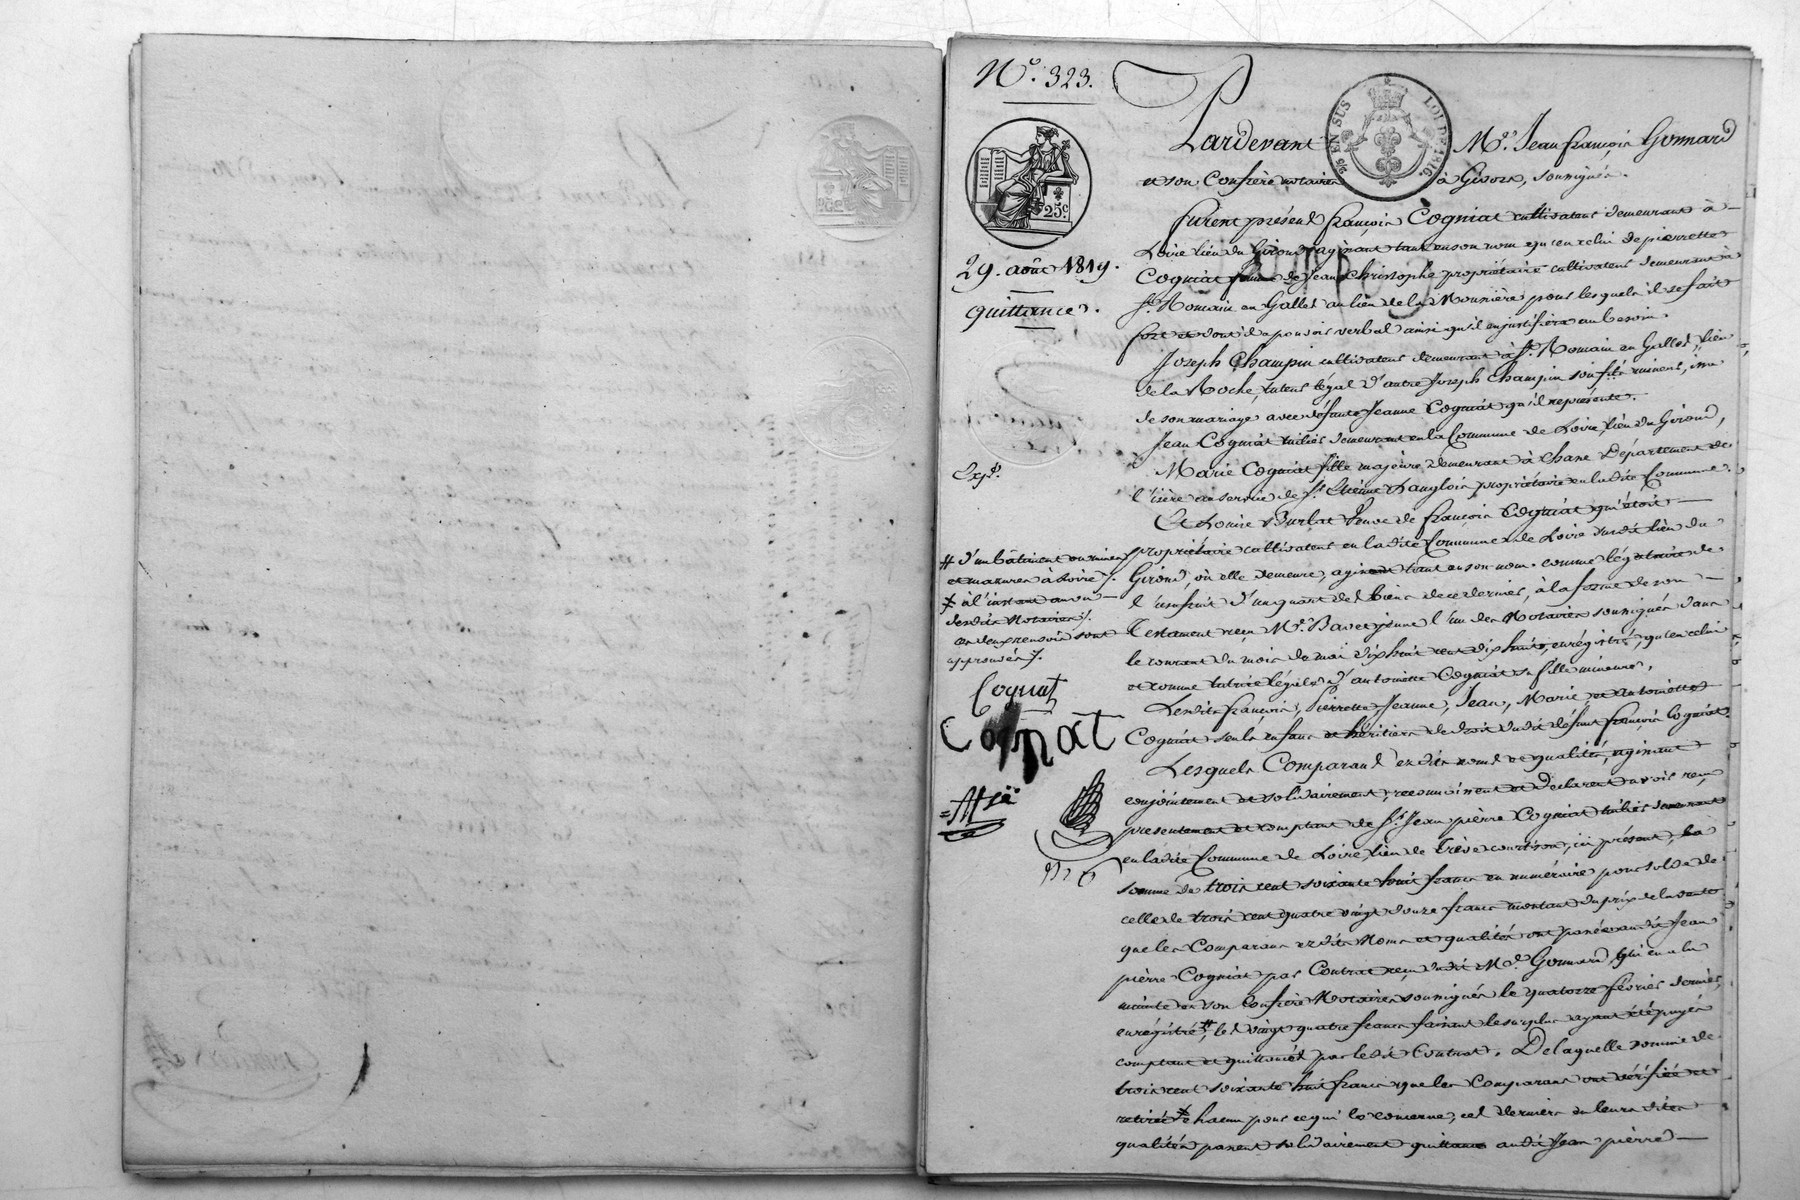 N.° 323.
25c.
29. août 1819.
quittance.
Exp.é
# d'un bâtiment en ruines
et masures à Loire /.
à l'instant au vu
desdits Notaires /.
les deux renvois sont
approuvés /.
Cogniat
Cognat
EN SUS LOI DE 1816.
Pardevant M.e Jean françois Gonnard
et son Confrère notaires à Givors, soussignés.
furent présens françois Cogniat cultivateur demeurant à
Loire lieu du Girond agissant tant en son nom qu'en celui de pierrette
Cogniat femme de Jean Christophe propriétaire cultivateur demeurant à
S.t Romain en Galles au lieu de la Mounière pour lesquels il se fait
fort et dont il a pouvoir verbal ainsi qu'il en justifiera au besoin
Joseph Champin cultivateur demeurant à S.t Romain en Galles, lieu
de la Roche, tuteur légal d'autre Joseph Champin son fils mineur, issu
de son mariage avec défunte Jeanne Cogniat qu'il représente.
Jean Cogniat demeurant en la Commune de Loire, lieu du Girond,
Marie Cogniat fille majeure, demeurant à Chane Département de
l'isère au service de S.r Etienne Danglois propriétaire en ladite Commune.
Et Louise Burlat Veuve de françois Cogniat qui étoit
propriétaire cultivateur en ladite Commune de Loire susdit lieu du
Girond, où elle demeure, agissant tant en son nom comme légataire de
l'usufruit d'un quart des biens de ce dernier, à la forme de son
Testament reçu M.e Bavet jeune l'un des Notaires soussignés dans
le courant du mois de mai dix huit cent dix huit, enrégistré, qu'en celui
et comme tutrice légale d'antoinette Cogniat sa fille mineure,
Lesdits françois, Pierrette, Jeanne, Jean, Marie, et antoinette
Cogniat seuls enfans et héritiers de droit dudit défunt françois Cogniat.
Lesquels Comparans ezdits noms et qualités, agissant
conjointement et solidairement, reconnoissent et déclarent avoir reçu
présentement et comptant de S.r Jean pierre Cogniat demeurant
en ladite Commune de Loire, lieu de Trève , ici présent, la
somme de trois cent soixante huit francs en numéraire pour solde de
celle de trois cent quatre vingt douze francs montant du prix de la vente
que les Comparans ezdits Noms et qualités ont passée audit Jean
pierre Cogniat par Contrat reçu dudit M.e Gonnard, qui en a la
minute et son Confrère Notaires soussignés le quatorze février dernier,
enrégistré, # les vingt quatre francs faisant le surplus ayant été payés
comptant et quittancés par ledit Contrat. De laquelle somme de
trois cent soixante huit francs que les Comparans ont vérifiée et
retirée chacun pour ce qui le concerne, ces derniers en leurs dites
qualités passent solidairement quittance audit Jean pierre